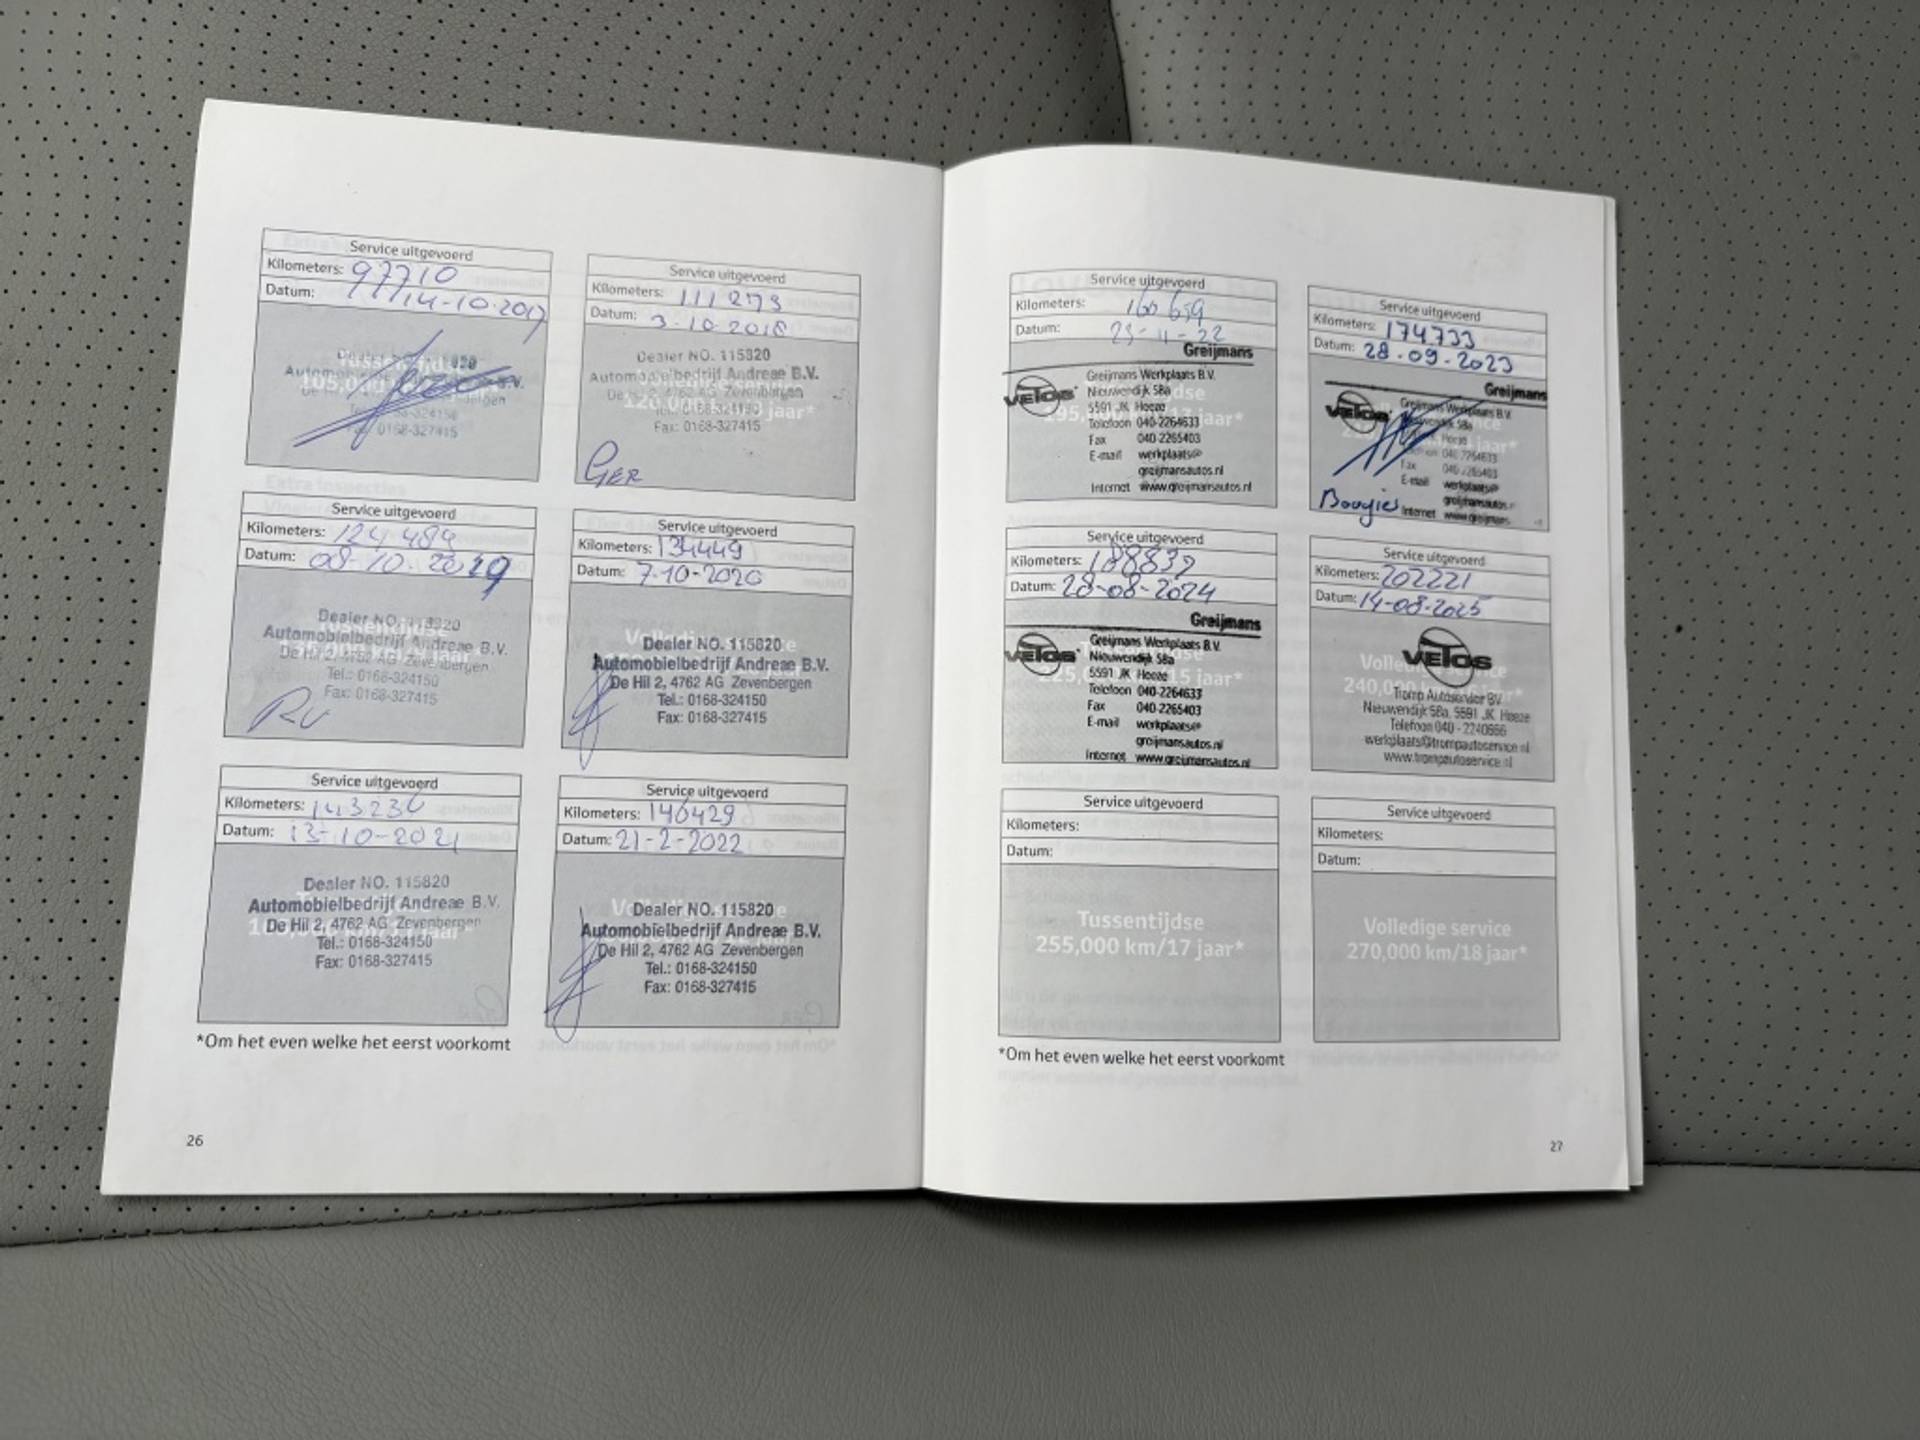 Service uitgevoerd
Kilometers: 97710
Datum: 14-10-2017
Automobielbedrijf Andreae B.V.
Fax: 0168-327415
Service uitgevoerd
Kilometers: 111273
Datum: 3-10-2018
Dealer NO. 115820
Automobielbedrijf Andreae B.V.
De Hil 2, 4762 AG Zevenbergen
Tel.: 0168-324150
Fax: 0168-327415
GER
Service uitgevoerd
Kilometers: 124 484
Datum: 08-10-2019
Dealer NO. 115820
Automobielbedrijf Andreae B.V.
De Hil 2, 4762 AG Zevenbergen
Tel.: 0168-324150
Fax: 0168-327415
Service uitgevoerd
Kilometers: 134449
Datum: 7-10-2020
Dealer NO. 115820
Automobielbedrijf Andreae B.V.
De Hil 2, 4762 AG Zevenbergen
Tel.: 0168-324150
Fax: 0168-327415
Service uitgevoerd
Kilometers: 143236
Datum: 13-10-2021
Dealer NO. 115820
Automobielbedrijf Andreae B.V.
De Hil 2, 4762 AG Zevenbergen
Tel.: 0168-324150
Fax: 0168-327415
Service uitgevoerd
Kilometers: 146429
Datum: 21-2-2022
Dealer NO. 115820
Automobielbedrijf Andreae B.V.
De Hil 2, 4762 AG Zevenbergen
Tel.: 0168-324150
Fax: 0168-327415
*Om het even welke het eerst voorkomt
26
Service uitgevoerd
Kilometers: 160 659
Datum: 23-11-22
Greijmans
VETOS
Greijmans Werkplaats B.V.
Nieuwendijk 58a
5591 JK Heeze
Telefoon 040-2264633
Fax 040-2265403
E-mail werkplaats@
greijmansautos.nl
Internet www.greijmansautos.nl
Service uitgevoerd
Kilometers: 174733
Datum: 28-09-2023
Greijmans
VETOS
Greijmans Werkplaats B.V.
Heeze
Fax 040-2265403
E-mail werkplaats@
greijmansautos.n
Bougies
Internet www.greijmans
Service uitgevoerd
Kilometers: 188839
Datum: 28-08-2024
Greijmans
VETOS
Greijmans Werkplaats B.V.
Nieuwendijk 58a
5591 JK Heeze
Telefoon 040-2264633
Fax 040-2265403
E-mail werkplaats@
greijmansautos.nl
Internet www.greijmansautos.nl
Service uitgevoerd
Kilometers: 202221
Datum: 14-08-2025
VETOS
Tromp Autoservice BV
Nieuwendijk 58a, 5591 JK Heeze
Telefoon 040 - 2240666
werkplaats@trompautoservice.nl
www.trompautoservice.nl
Service uitgevoerd
Kilometers:
Datum:
Tussentijdse
255,000 km/17 jaar*
Service uitgevoerd
Kilometers:
Datum:
Volledige service
270,000 km/18 jaar*
*Om het even welke het eerst voorkomt
27